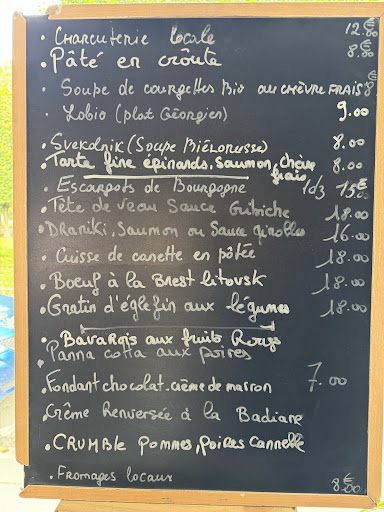 • CHARCUTERIE locale 12.€00
• Pâté en croûte 8.€00
• Soupe de courgettes Bio au CHÈVRE FRAIS 8€
• Lobio (plat Géorgien) 9.00
• Svekolnik (Soupe Biélorusse) 8.00
• Tarte fine épinards, Saumon, chèvre frais 8.00
• Escargots de Bourgogne 1d3 15€
• Tête de veau Sauce Gribiche 18.00
• DRANIKI, Saumon ou Sauce girolles 16.00
• Cuisse de canette en pôtée 18.00
• Boeuf à la Brest litovsk 18.00
• Gratin d'églefin aux légumes 18.00
• BavaRois aux fruits Rouges
• Panna cotta aux poires
• Fondant chocolat-crème de marron 7.00
• Crême Renversée à la Badiane
• CRUMBLE Pommes, Poires Cannelle
• Fromages locaux 8.€00